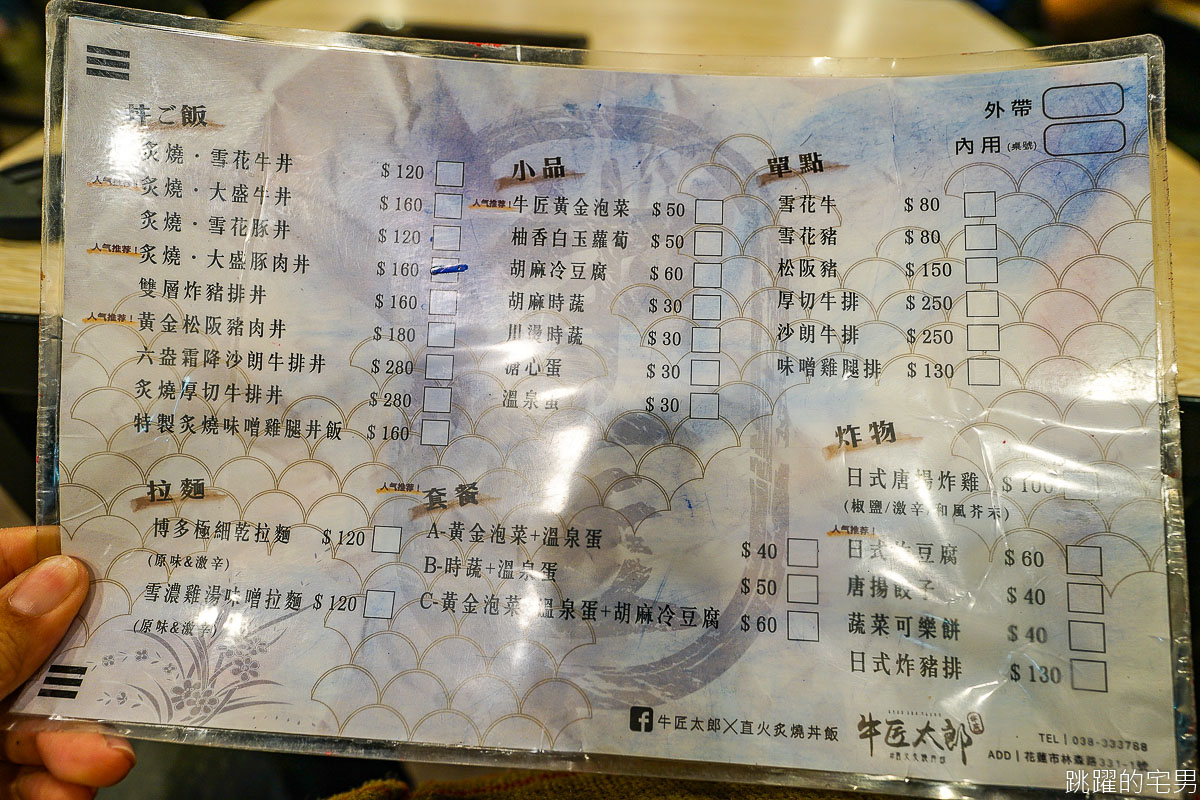 外帶
內用(桌號)
丼ご飯
炙燒·雪花牛丼 $120
人气推荐! 炙燒·大盛牛丼 $160
炙燒·雪花豚丼 $120
人气推荐! 炙燒·大盛豚肉丼 $160
雙層炸豬排丼 $160
人气推荐! 黃金松阪豬肉丼 $180
六盎霜降沙朗牛排丼 $280
炙燒厚切牛排丼 $280
特製炙燒味噌雞腿丼飯 $160
小品
人气推荐! 牛匠黃金泡菜 $50
柚香白玉蘿蔔 $50
胡麻冷豆腐 $60
胡麻時蔬 $30
川燙時蔬 $30
溏心蛋 $30
溫泉蛋 $30
單點
雪花牛 $80
雪花豬 $80
松阪豬 $150
厚切牛排 $250
沙朗牛排 $250
味噌雞腿排 $130
拉麵
博多極細乾拉麵 $120
(原味&激辛)
雪濃雞湯味噌拉麵 $120
(原味&激辛)
人气推荐! 套餐
A-黃金泡菜+溫泉蛋 $40
B-時蔬+溫泉蛋 $50
C-黃金泡菜+溫泉蛋+胡麻冷豆腐 $60
炸物
日式唐揚炸雞 $100
(椒鹽/激辛/和風芥末)
人气推荐!
日式炸豆腐 $60
唐揚餃子 $40
蔬菜可樂餅 $40
日式炸豬排 $130
牛匠太郎╳直火炙燒丼飯
牛匠太郎
TEL | 038-333788
ADD | 花蓮市林森路331-1號
跳躍的宅男